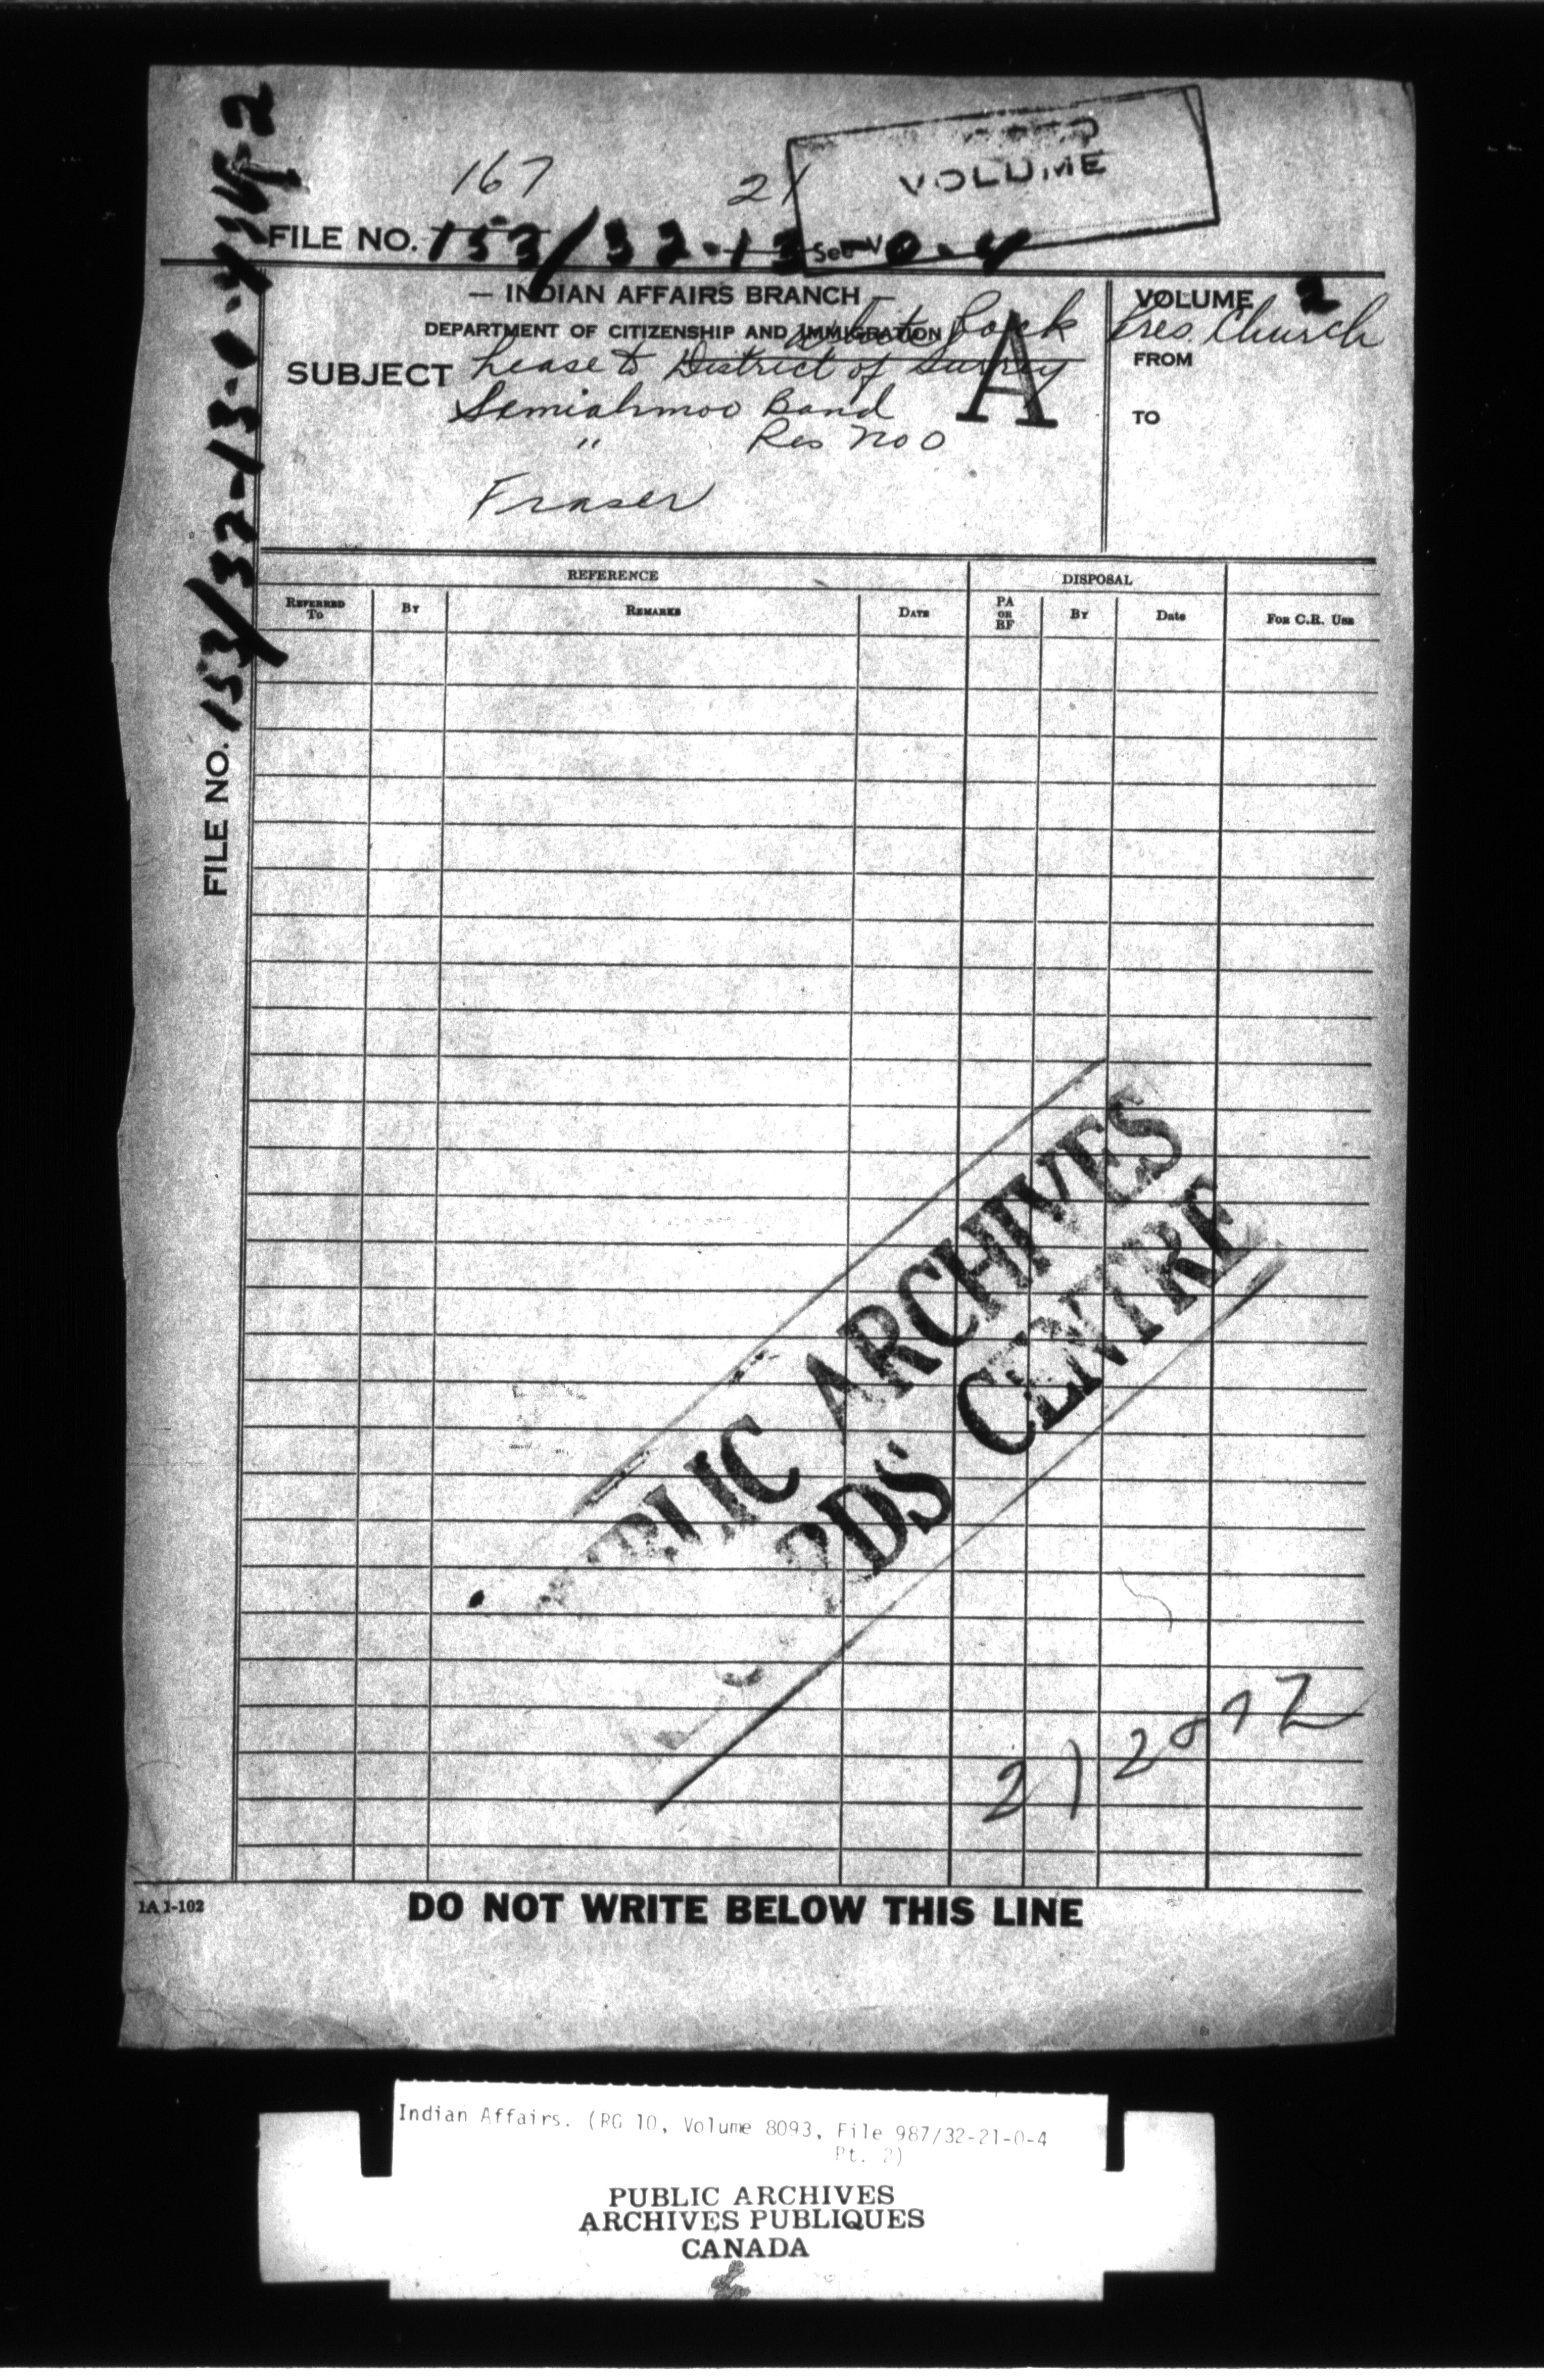 167 21
VOLUME
FILE NO. 153/32-13-0-4
See V
— INDIAN AFFAIRS BRANCH —
VOLUME 2
DEPARTMENT OF CITIZENSHIP AND IMMIGRATION
White Rock Pres. Church
SUBJECT Lease to District of Surrey
FROM
A
Semiahmoo Band
TO
" Res No 0
Fraser
REFERENCE DISPOSAL
REFERRED TO BY REMARKS DATE PA OR BF BY Date FOR C.R. USE
FILE NO. 153/32-13-0-4
ARCHIVES
CENTRE
1A 1-102
DO NOT WRITE BELOW THIS LINE
Indian Affairs. (RG 10, Volume 8093, File 987/32-21-0-4
Pt. 2)
PUBLIC ARCHIVES
ARCHIVES PUBLIQUES
CANADA